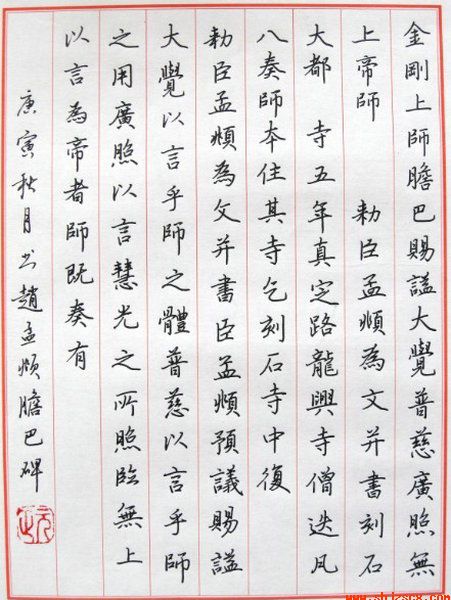 金剛上師膽巴賜謚大覺普慈廣照無
上帝師 勅臣孟頫為文并書刻石
大都 寺五年真定路龍興寺僧迭凡
八奏師本住其寺乞刻石寺中復
勅臣孟頫為文并書臣孟頫預議賜謚
大覺以言乎師之體普慈以言乎師
之用廣照以言慧光之所照臨無上
以言為帝者師既奏有
庚寅秋月书趙孟頫膽巴碑